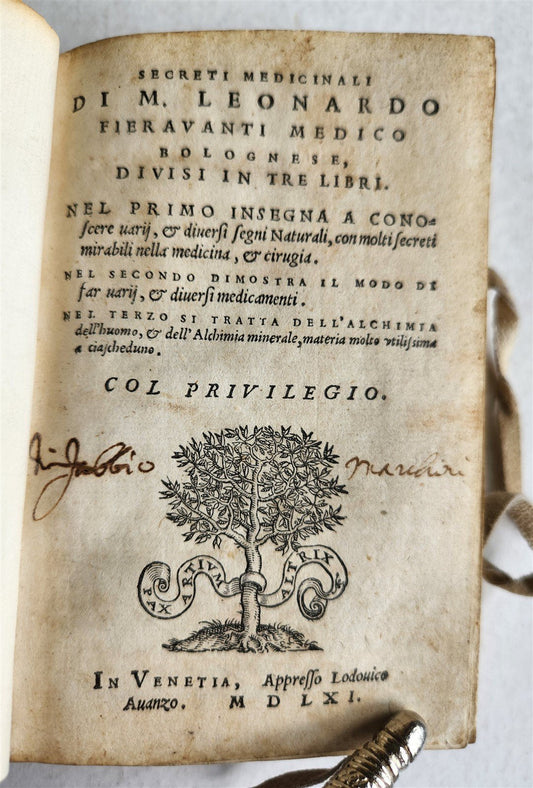 SECRETI MEDICINALI
DI M. LEONARDO
FIERAVANTI MEDICO
BOLOGNESE,
DIVISI IN TRE LIBRI.
NEL PRIMO INSEGNA A CONO-
ſcere uarij, & diuerſi ſegni Naturali, con molti ſecreti
mirabili nella medicina, & cirugia.
NEL SECONDO DIMOSTRA IL MODO DI
far uarij, & diuerſi medicamenti.
NEL TERZO SI TRATTA DELL'ALCHIMIA
dell'huomo, & dell'Alchimia minerale, materia molto vtiliſsima
a ciaſcheduno.
COL PRIVILEGIO.
Fabbio Marchini
PAX ARTIVM ALTRIX
IN VENETIA, Appreſſo Lodouico
Auanzo. MDLXI.